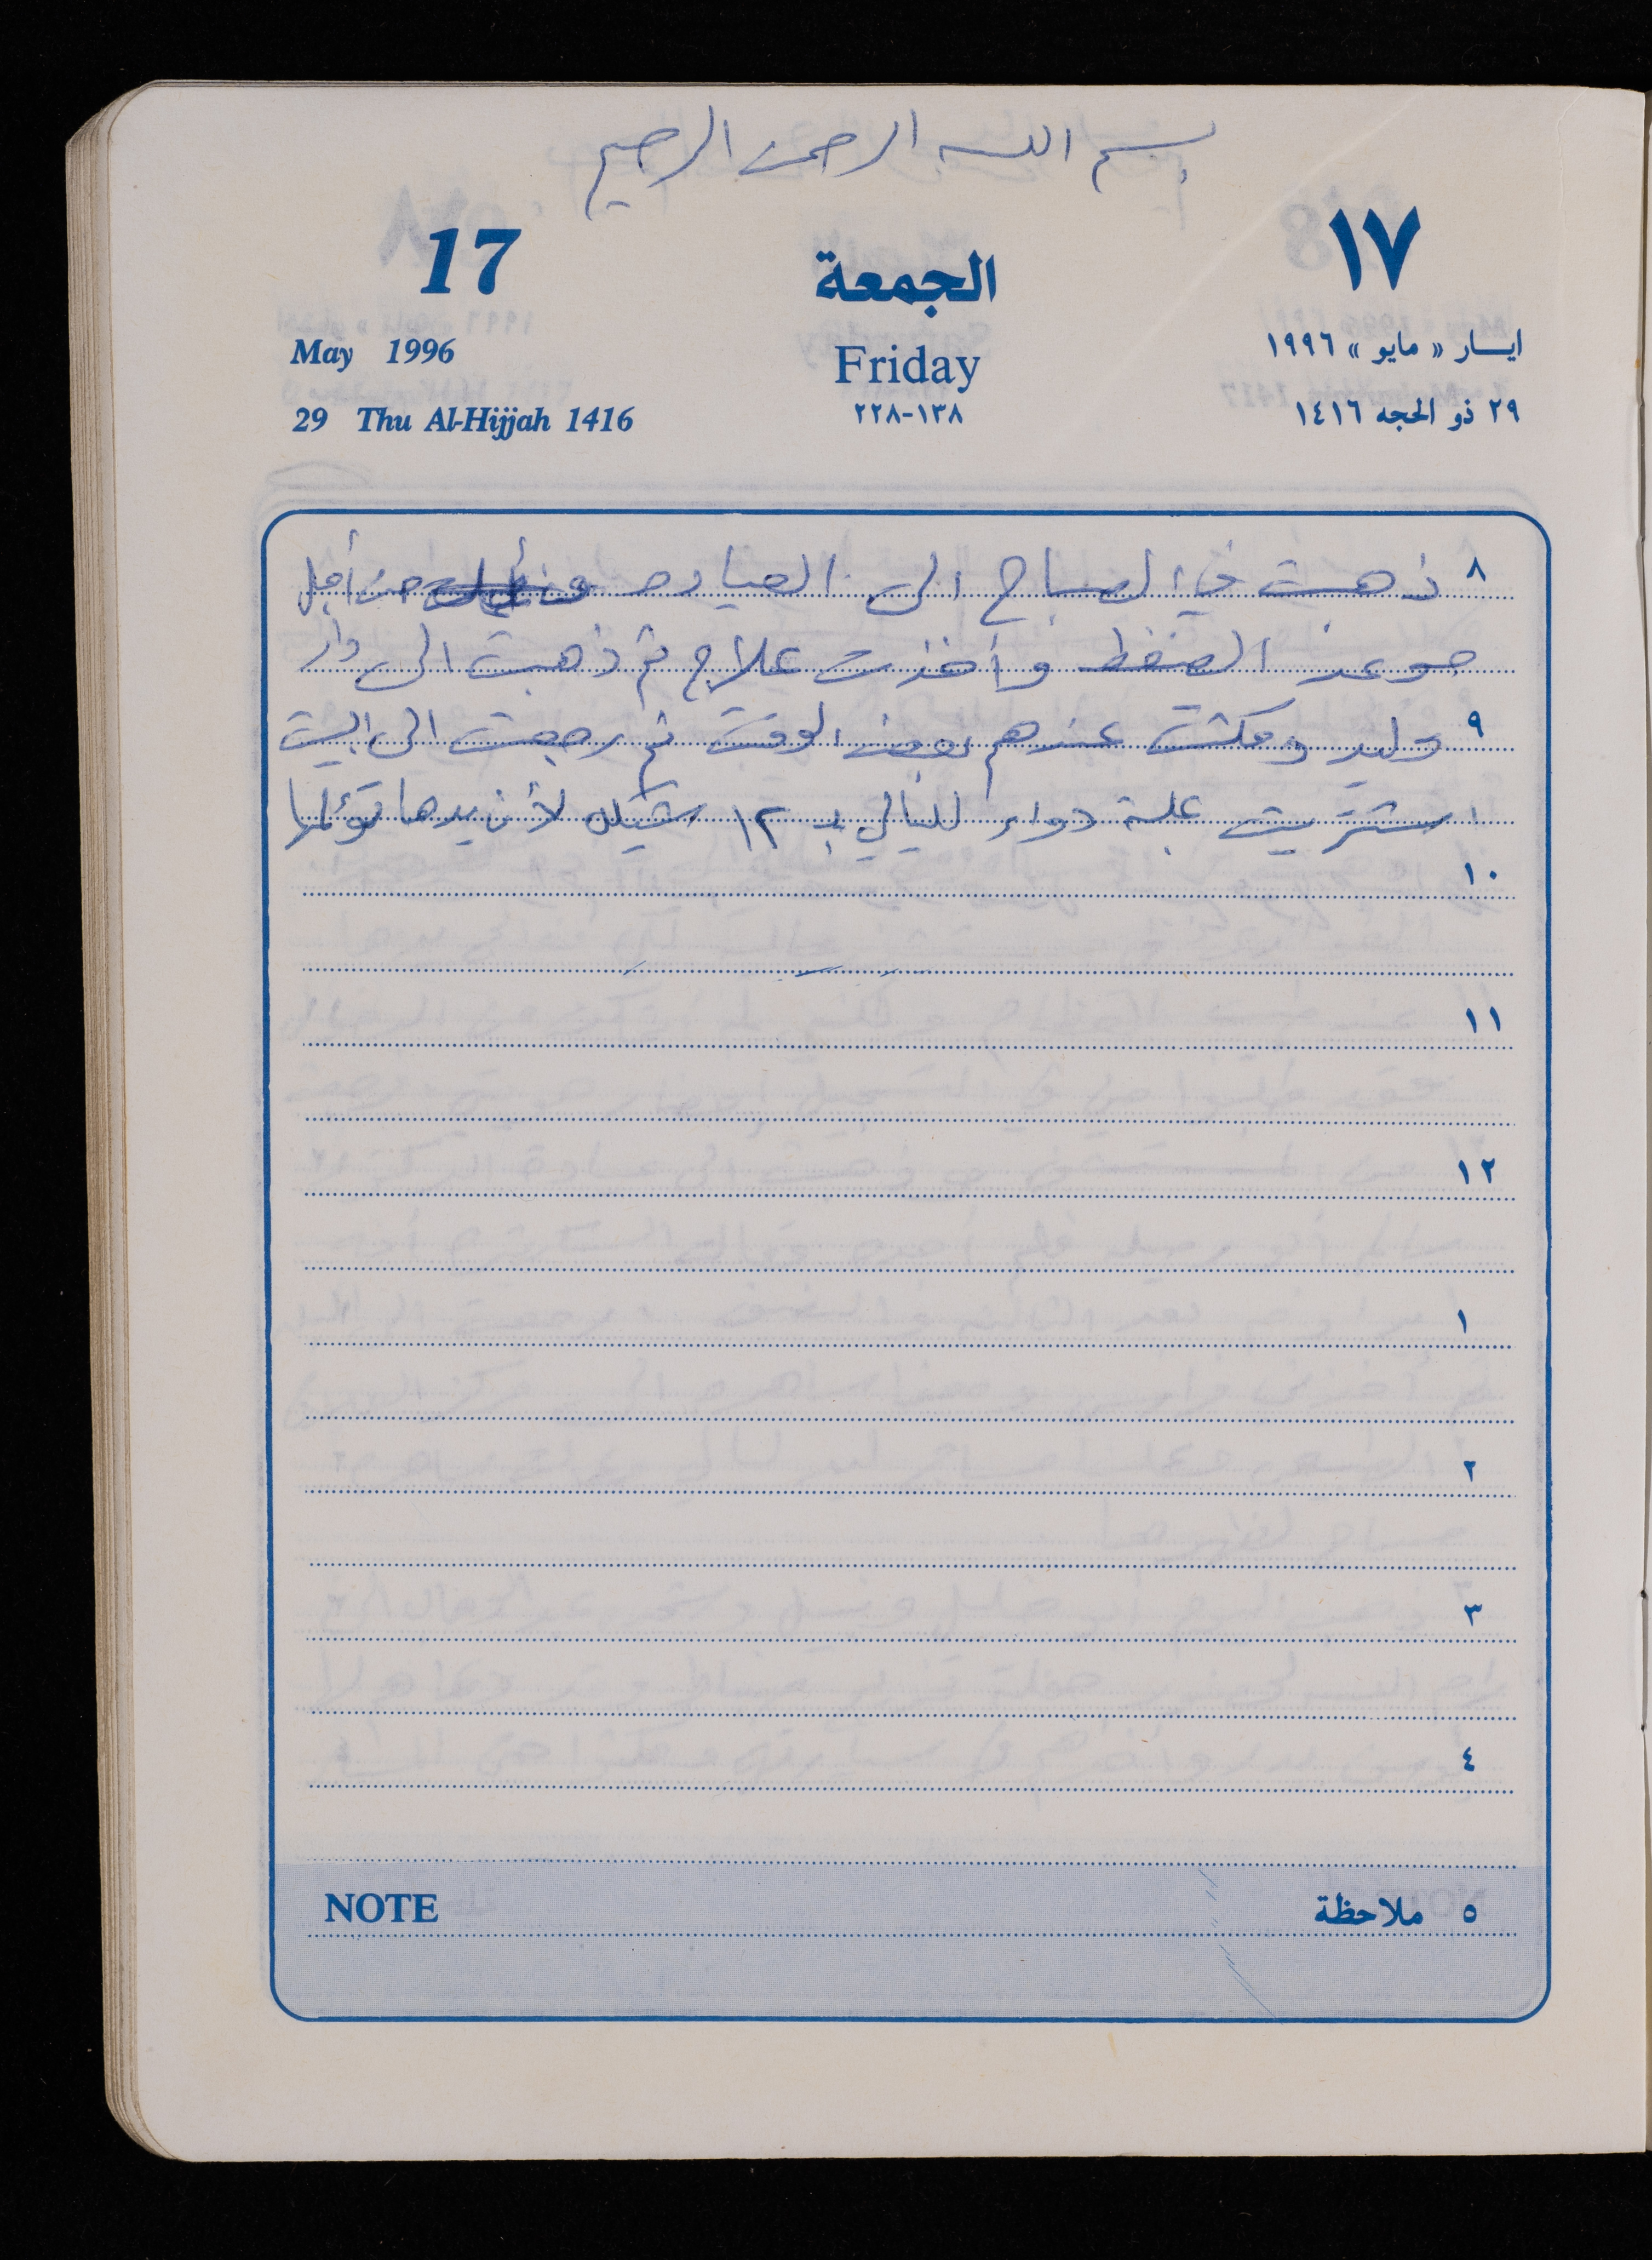 بسم الله الرحمن الرحيم
17 الجمعة ١٧
May 1996 Friday ايسار « مايو » ١٩٩٦
29 Thu Al-Hijjah 1416 ١٣٨-٢٢٨ ٢٩ ذو الحجه ١٤١٦
٨ ذهبت في الصباح الى العياده من أجل
موعد الضغط وأخذت علاج ثم ذهبت الى دار
٩ وليد ومكثت عندهم بعض الوقت ثم رجعت الى البيت
اشتريت علبة دواء لليالي بـ ١٢ شيكل لأن يدها تؤلمها
١٠
١١
١٢
١
٢
٣
٤
NOTE ٥ ملاحظة